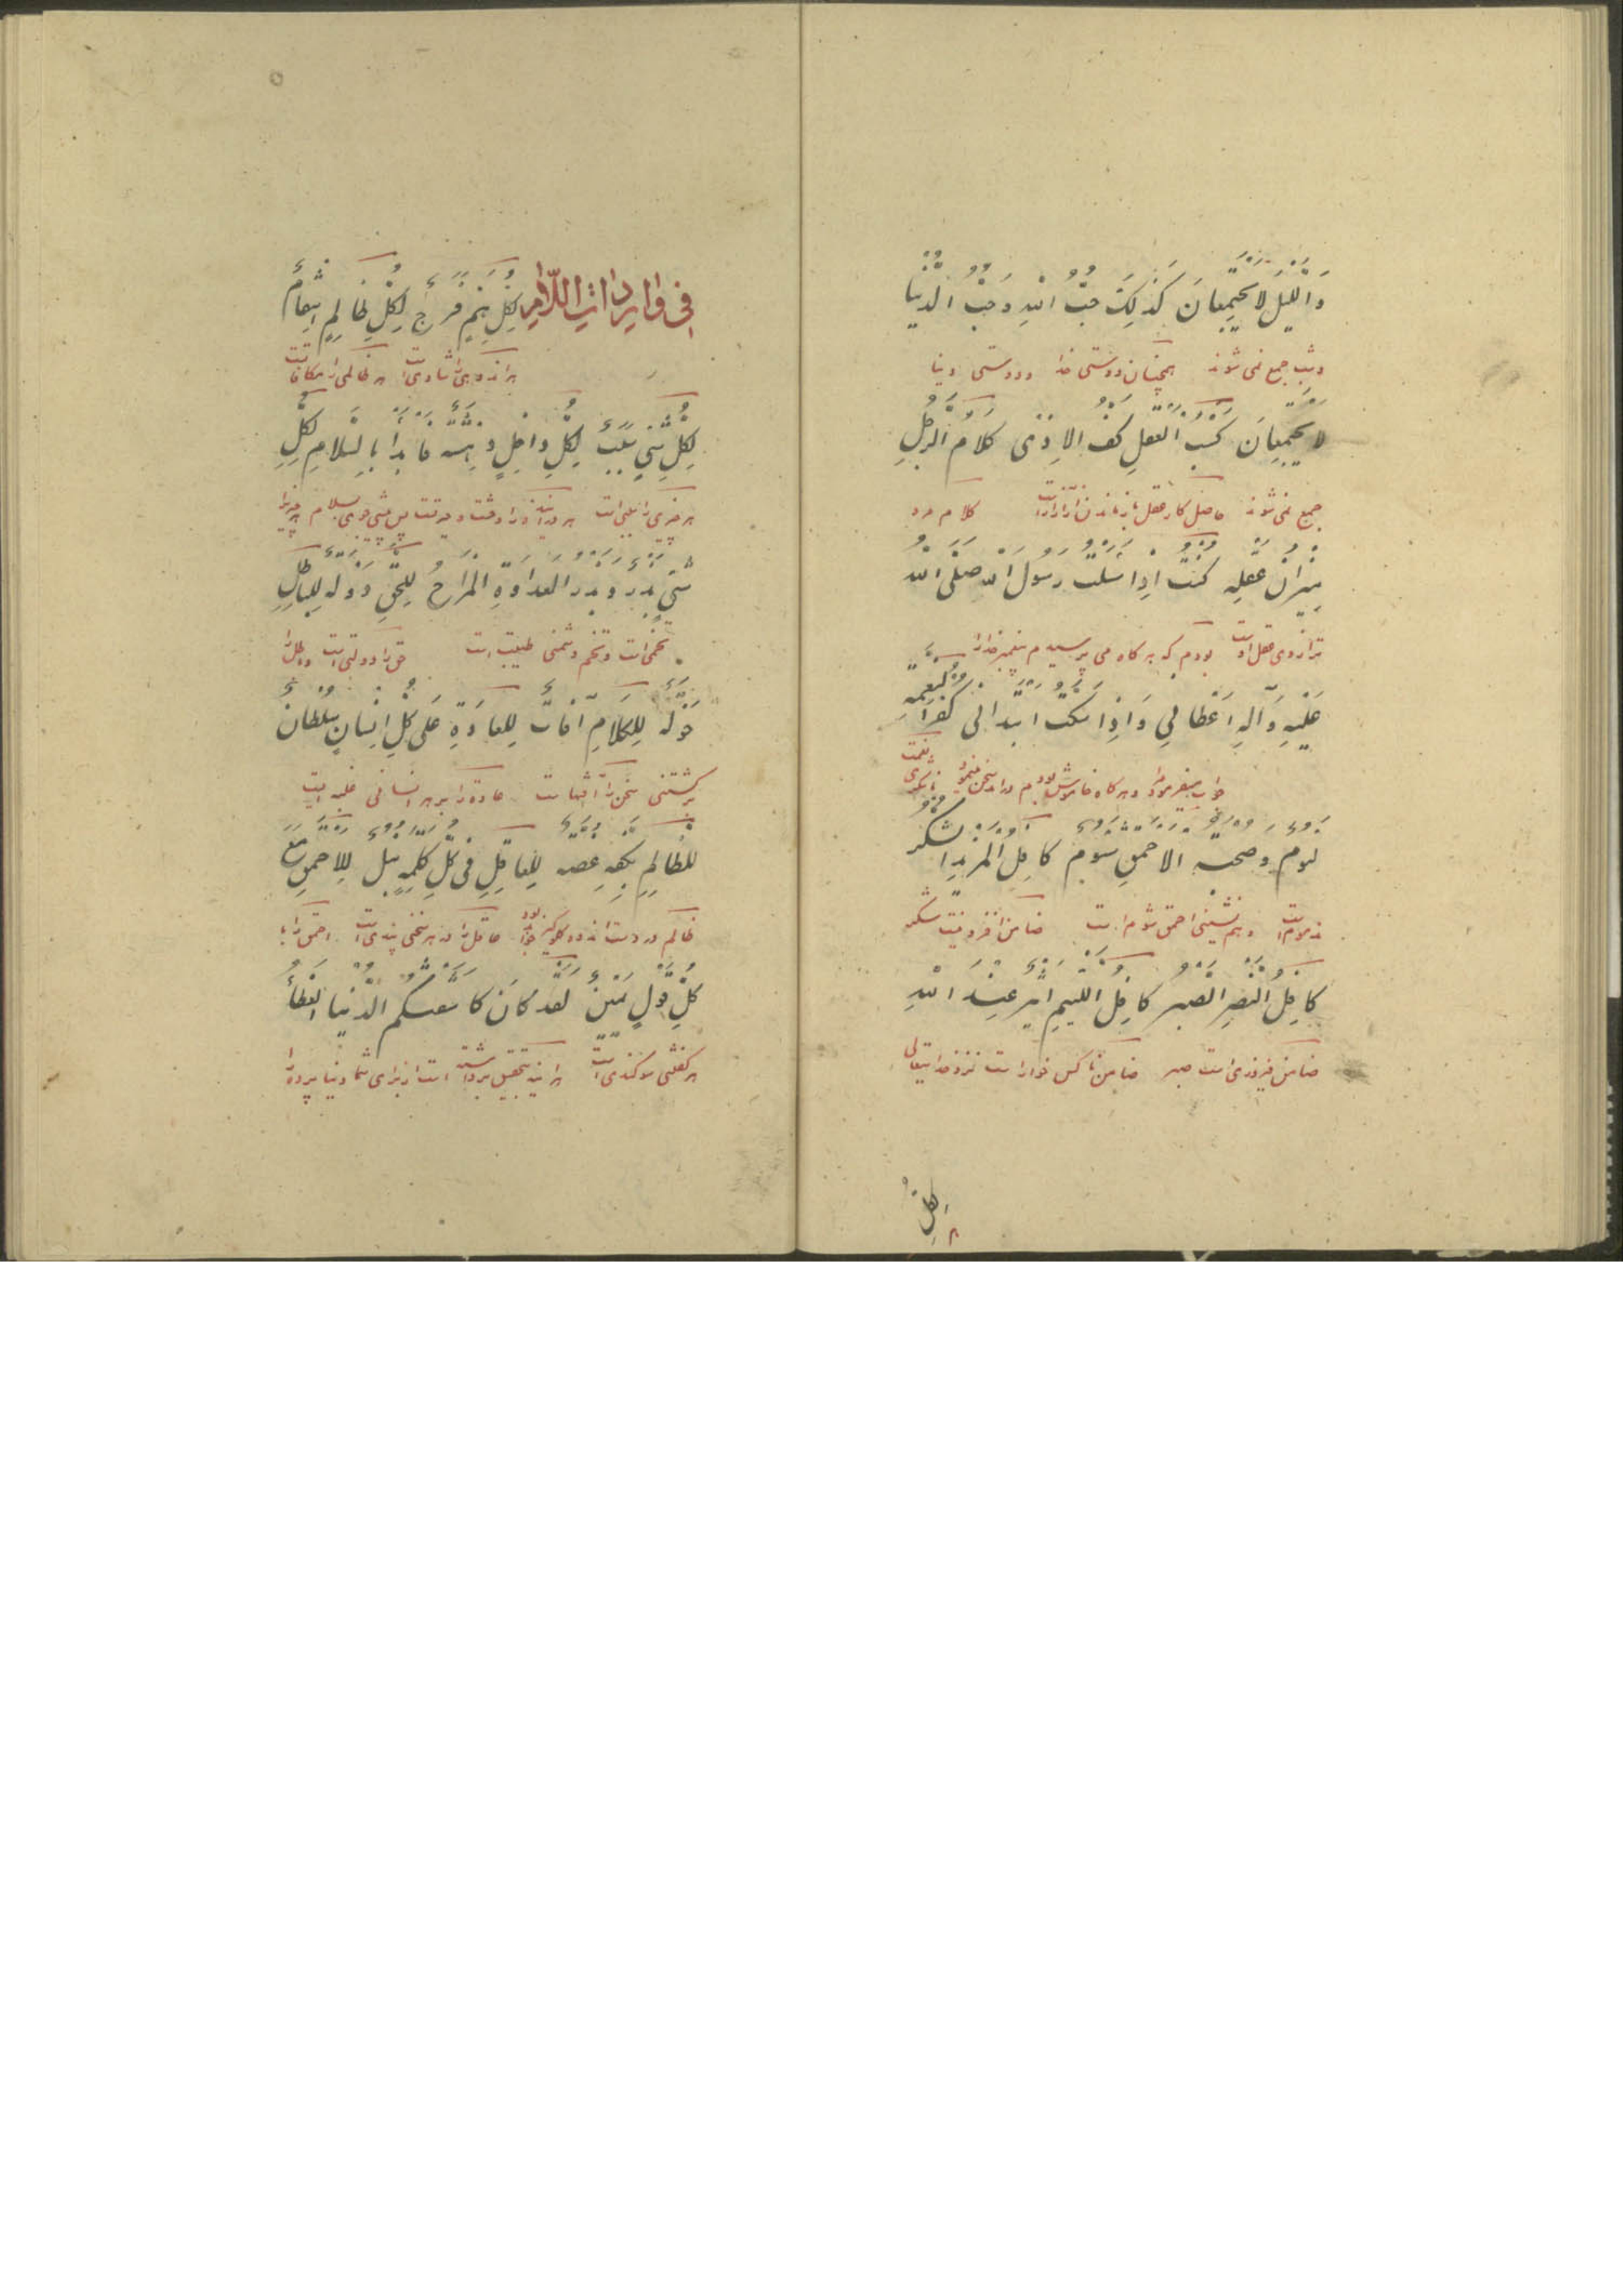 وَاللَّيْلُ لَا يَجْتَمِعَانَ كَذَلِكَ حُبُّ اللهِ وَحُبُّ الدُّنْيَا
وشب جمع نمی شوند همچنان دوستی خدا و دوستی دنیا
لَا يَجْتَمِعَانَ كَسْبُ الْعَقْلِ كَفُّ الْاَذَى كَلَامُ الرَّجُلِ
جمع نمی شوند حاصل کار عقل باز ماندن از آزار است کلام مرد
مِيْزَانُ عَقْلِهِ كُنْتُ اِذَا سَئَلْتُ رَسُولَ اللهِ صَلَّى اللهُ
ترازوی عقل اوست بودم که به کاه می پرسیدم پیغمبر خدا را
عَلَيْهِ وَآلِهِ اَعْطَانِي وَاِذَا سَكَتُّ ابْتَدَانِى كُفْرُ النِّعْمَةِ
جواب میفرمود مرا و هر کاه خاموش بودم مرا سخن میفرمود ناشکری نعمت
لُؤْمٌ وَصُحْبَةُ الْاَحْمَقِ شُومٌ كَافِلُ الْمَزِيْدِ الشُّكْرُ
مذمومست و همنشینی احمق شوم است ضامن افزونیست شکر
كَافِلُ النَّصْرِ الصَّبْرُ كَافِلُ اللَّئِيْمِ عِنْدَ اللهِ
ضامن فیروزی است صبر ضامن ناکس خوار است نزد خدایتعالی
لِكُلِّ
فِى وَارِدَاتِ اللَّامِ لِكُلِّ هَمٍّ فَرَجٌ لِكُلِّ ظَالِمٍ انْتِقَامٌ
هر اندوهی را شادی است هر ظالمی را مکافاتست
لِكُلِّ شَيْءٍ سَبَبٌ لِكُلِّ دَاخِلٍ دَهْشَةٌ فَابْدَأْ بِالسَّلَامِ لِكُلِّ
هر چیزی را سببی است پس پیشی جوی بسلام هر چیز را
شَيْءٍ بَذْرٌ وَبَذْرُ الْعَدَاوَةِ الْمِزَاحُ لِلْحَقِّ دَوْلَةٌ لِلْبَاطِلِ
تخمی است و تخم دشمنی طیبت است حق را دولتی است و باطل را
جَوْلَةٌ لِلْكَلَامِ آفَاتٌ لِلْعَادَةِ عَلَى كُلِّ اِنْسَانٍ سُلْطَانٌ
برگشتنی سخن را آفتهاست عادة را بر هر انسانی غلبه ایست
لِلظَّالِمِ بِكَفِّهِ عَضَّةٌ لِلْعَاقِلِ فِى كُلِّ كَلِمَةٍ نُبْلٌ لِلْاَحْمَقِ مَعَ
عاقل را در هر سخنی پندی است احمق را با
كُلِّ قَوْلٍ يَمِيْنٌ لَقَدْ كَاشَفَتْكُمُ الدُّنْيَا الْغِطَاءَ
هر گفتی سوگندی است هر اینه بتحقیق برداشته است از برای شما دنیا پرده را